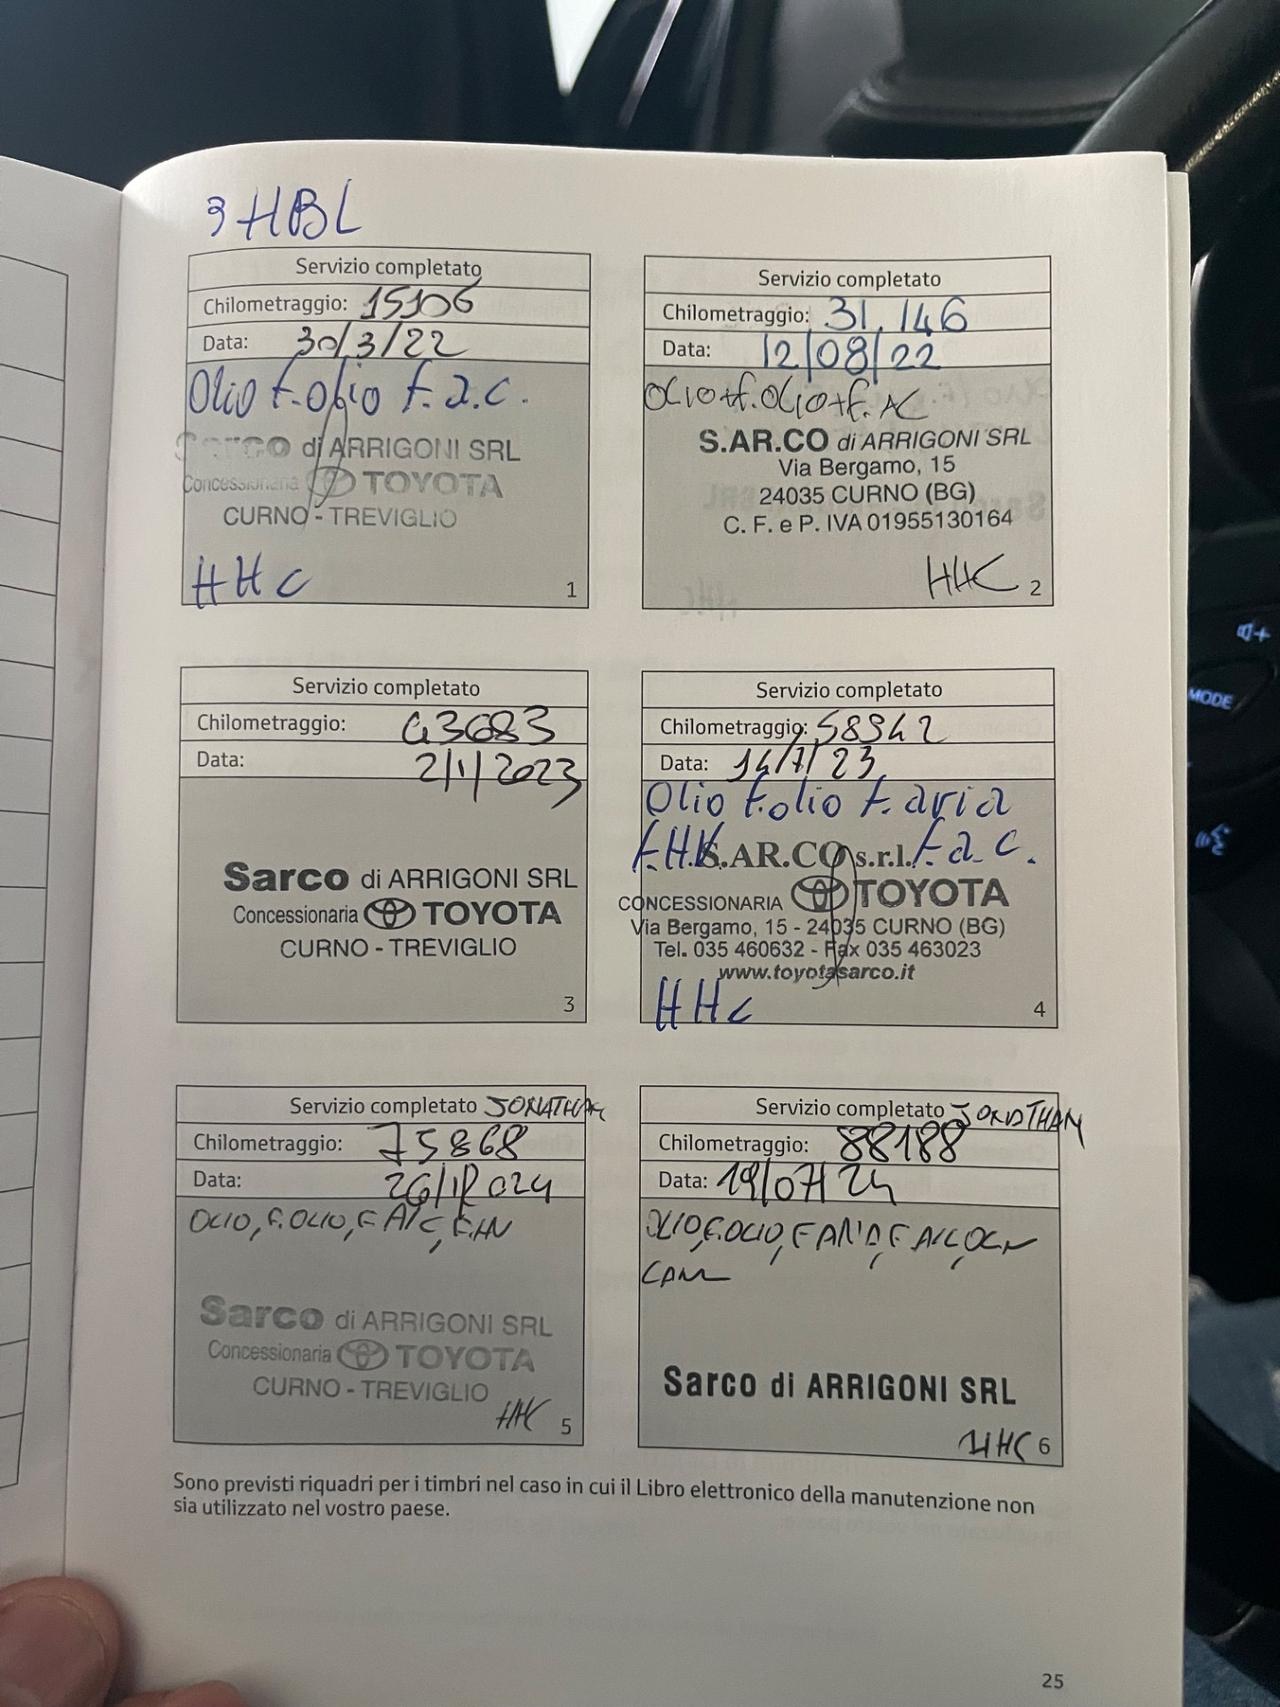 3HBL
Servizio completato
Chilometraggio: 15106
Data: 30/3/22
Olio f.olio f.a.c.
Sarco di ARRIGONI SRL
Concessionaria TOYOTA
CURNO - TREVIGLIO
HHC
1
Servizio completato
Chilometraggio: 31.146
Data: 12/08/22
OLIO+F.OLIO+F.AC
S.AR.CO di ARRIGONI SRL
Via Bergamo, 15
24035 CURNO (BG)
C. F. e P. IVA 01955130164
HHC
2
Servizio completato
Chilometraggio: 43683
Data: 2/1/2023
Sarco di ARRIGONI SRL
Concessionaria TOYOTA
CURNO - TREVIGLIO
3
Servizio completato
Chilometraggio: 58342
Data: 14/7/23
Olio f.olio f.aria
S.AR.CO s.r.l. f.a.c.
CONCESSIONARIA TOYOTA
Via Bergamo, 15 - 24035 CURNO (BG)
Tel. 035 460632 - Fax 035 463023
www.toyotasarco.it
HHC
4
Servizio completato JONATHAN
Chilometraggio: 75868
Data:
OLIO, F.OLIO, F A/C, F.HV
Sarco di ARRIGONI SRL
Concessionaria TOYOTA
CURNO - TREVIGLIO
HHC
5
Servizio completato JONATHAN
Chilometraggio: 88188
Data: 19/07/24
OLIO, F.OLIO, F ARIA, F A/C,
Sarco di ARRIGONI SRL
HHC
6
Sono previsti riquadri per i timbri nel caso in cui il Libro elettronico della manutenzione non
sia utilizzato nel vostro paese.
25
MODE